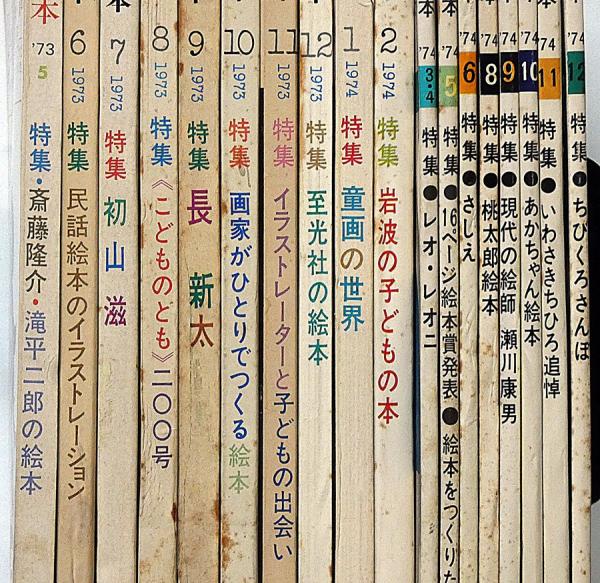 本 '73 5 特集・斎藤隆介・滝平二郎の絵本
6 1973 特集 民話絵本のイラストレーション
本 7 1973 特集 初山滋
8 1973 特集 《こどものとも》二〇〇号
9 1973 特集 長新太
10 1973 特集 画家がひとりでつくる絵本
11 1973 特集 イラストレーターと子どもの出会い
12 1973 特集 至光社の絵本
1 1974 特集 童画の世界
2 1974 特集 岩波の子どもの本
本 '74 3・4 特集●レオ・レオニ
'74 5 特集●16ページ絵本賞発表●絵本をつくりた
'74 6 特集●さしえ
'74 8 特集●桃太郎絵本
'74 9 特集●現代の絵師 瀬川康男
'74 10 特集●あかちゃん絵本
本 '74 11 特集●いわさきちひろ追悼
'74 12 特集●ちびくろさんぼ